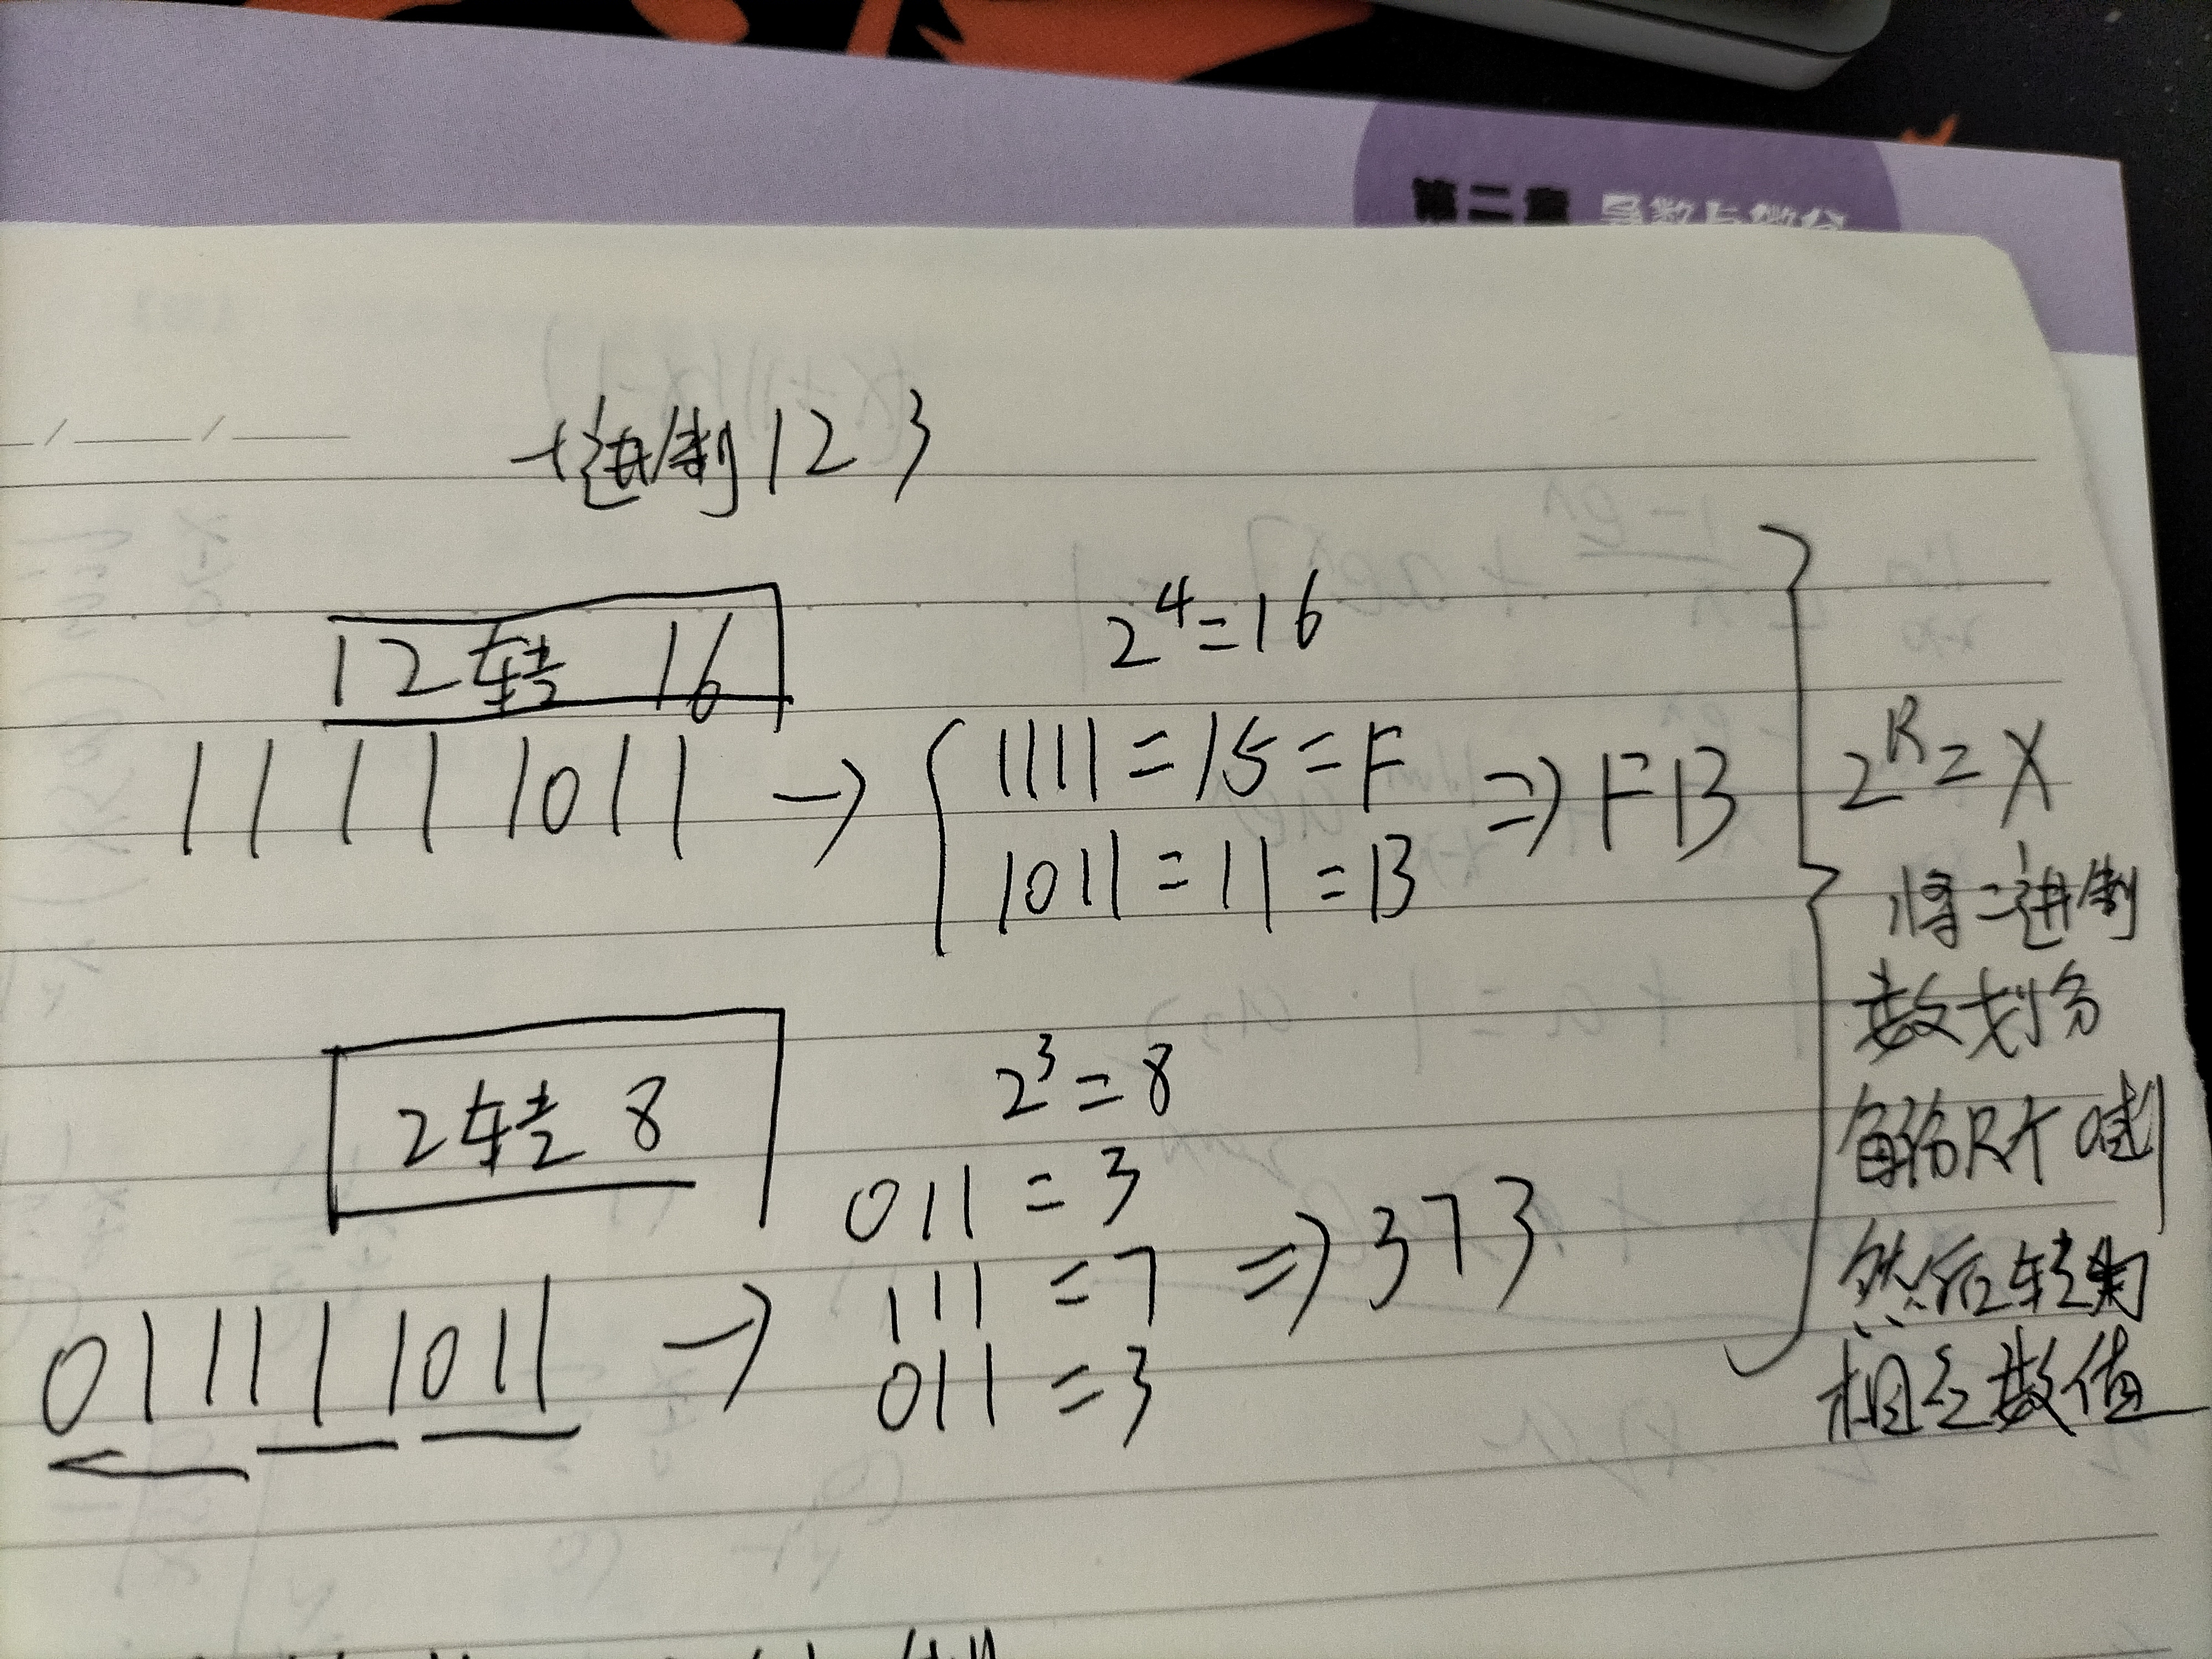 第二章 导数与微分
十进制123
12转 16
2⁴=16
11111011 → { 1111=15=F
1011=11=B
⇒ FB
2ᴿ=X
将二进制
数划分
每份R个
然后转为
相应数值
2转8
2³=8
011=3
111=7
011=3
⇒ 373
011111011 →